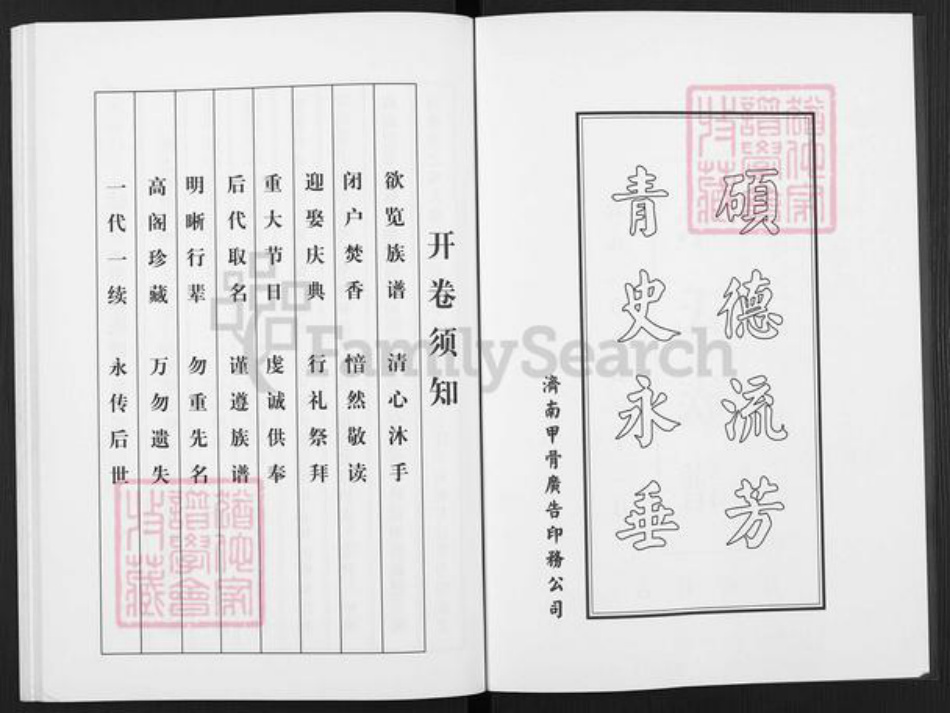 碩德流芳
青史永垂
濟南甲骨廣告印務公司
开卷须知
欲览族谱 清心沐手
闭户焚香 愔然敬读
迎娶庆典 行礼祭拜
重大节日 虔诚供奉
后代取名 谨遵族谱
明晰行辈 勿重先名
高阁珍藏 万勿遗失
一代一续 永传后世
FamilySearch